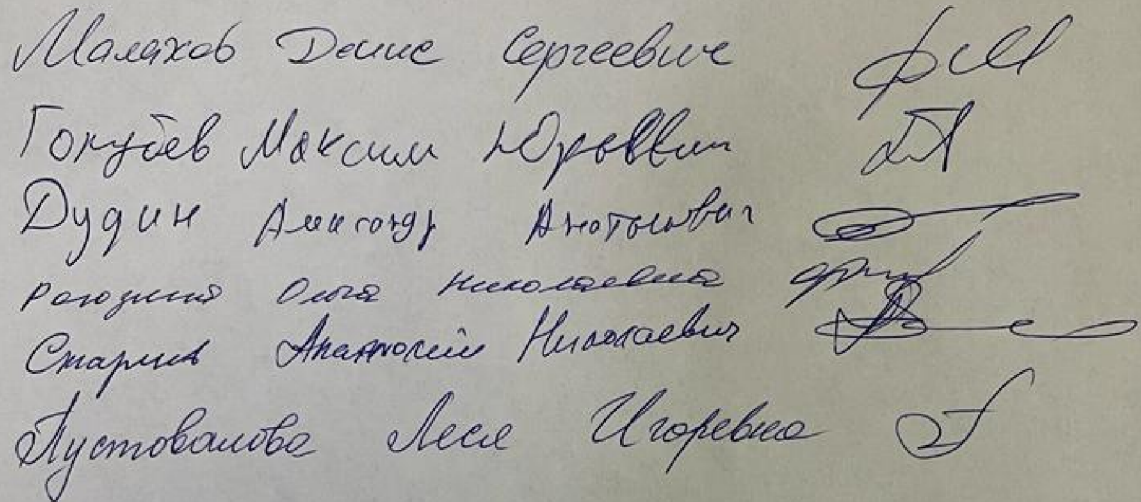 Малахов Денис Сергеевич
Голубев Максим Юрьевич
Дудин Александр Анатольевич
Ольга Николаевна
Анатолий Николаевич
Пустовалова Леся Игоревна